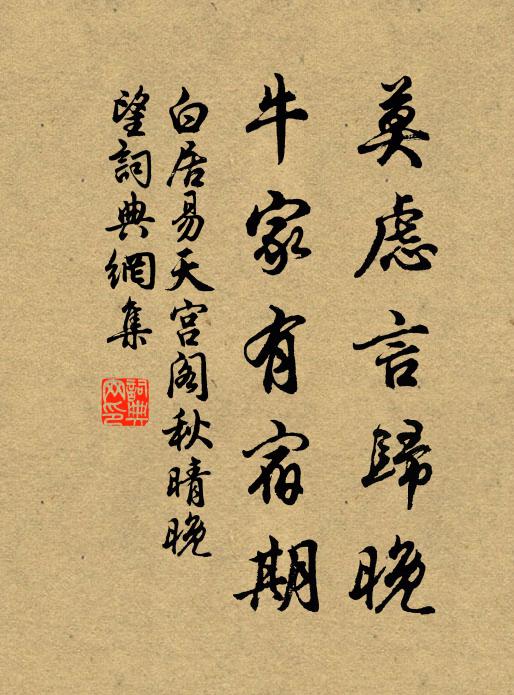 莫慮言歸晚
牛家有宿期
白居易天宮閣秋晴晚
望詞典網集
詞典網印